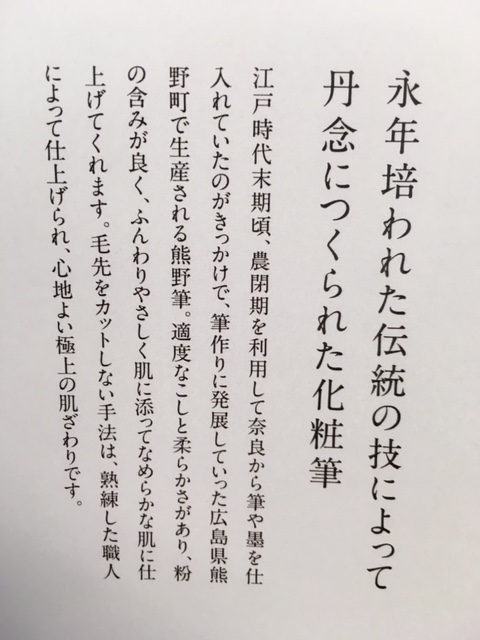 永年培われた伝統の技によって
丹念につくられた化粧筆
江戸時代末期頃、農閉期を利用して奈良から筆や墨を仕
入れていたのがきっかけで、筆作りに発展していった広島県熊
野町で生産される熊野筆。適度なこしと柔らかさがあり、粉
の含みが良く、ふんわりやさしく肌に添ってなめらかな肌に仕
上げてくれます。毛先をカットしない手法は、熟練した職人
によって仕上げられ、心地よい極上の肌ざわりです。